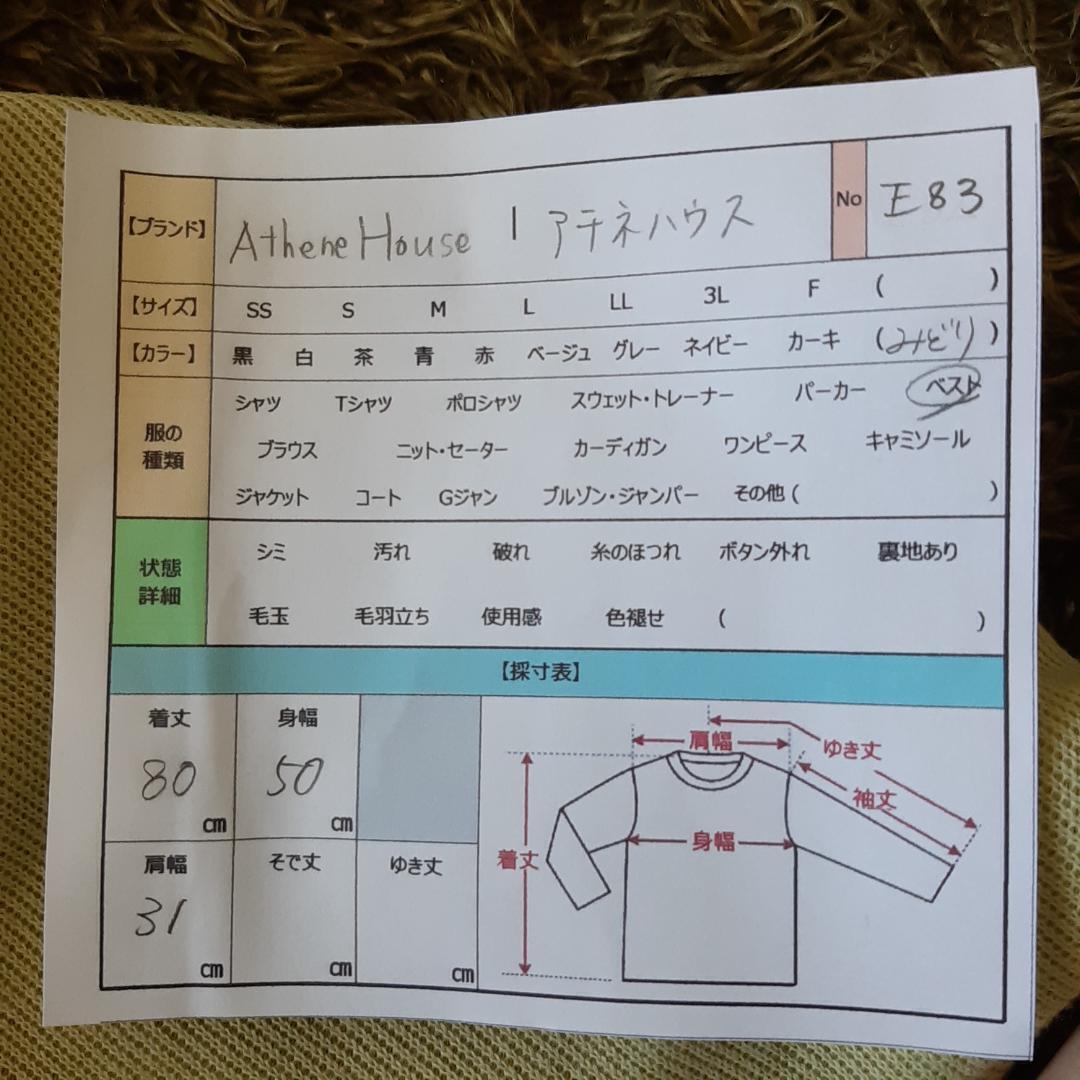 【ブランド】 Athene House | アテネハウス No E83
【サイズ】 SS S M L LL 3L F ( )
【カラー】 黒 白 茶 青 赤 ベージュ グレー ネイビー カーキ (みどり)
服の種類
シャツ Tシャツ ポロシャツ スウェット・トレーナー パーカー ベスト
ブラウス ニット・セーター カーディガン ワンピース キャミソール
ジャケット コート Gジャン ブルゾン・ジャンパー その他 ( )
状態詳細
シミ 汚れ 破れ 糸のほつれ ボタン外れ 裏地あり
毛玉 毛羽立ち 使用感 色褪せ ( )
【採寸表】
着丈 身幅
80 cm 50 cm
肩幅 そで丈 ゆき丈
31 cm cm cm
肩幅
ゆき丈
袖丈
身幅
着丈